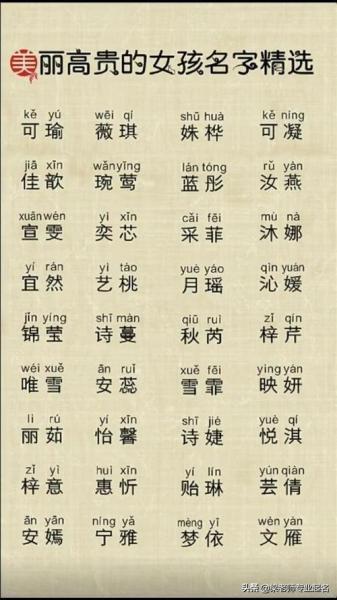 美丽高贵的女孩名字精选
kě yú wēi qí shū huà kě níng
可瑜 薇琪 姝桦 可凝
jiā xīn wǎn yīng lán tóng rǔ yàn
佳歆 琬莺 蓝彤 汝燕
xuān wén yì xīn cǎi fēi mù nà
宣雯 奕芯 采菲 沐娜
yí rán yì táo yuè yáo qìn yuán
宜然 艺桃 月瑶 沁媛
jǐn yíng shī màn qiū ruì zǐ qín
锦莹 诗蔓 秋芮 梓芹
wéi xuě ān ruǐ xuě fēi yìng yán
唯雪 安蕊 雪霏 映妍
lì rú yí xīn shī jié yuè qí
丽茹 怡馨 诗婕 悦淇
zǐ yì huì xīn yí lín yún qiàn
梓意 惠忻 贻琳 芸倩
ān yān níng yǎ mèng yī wén yàn
安嫣 宁雅 梦依 文雁
头条 @梁老师专业起名